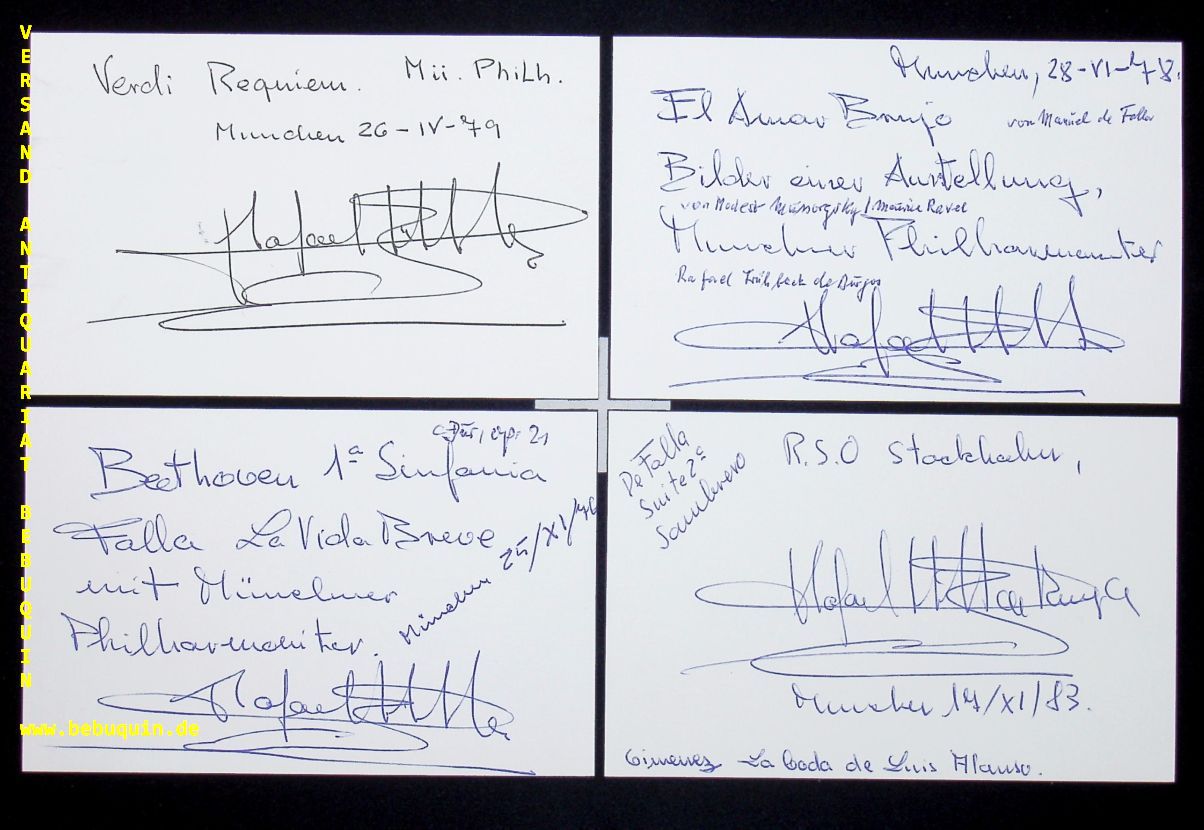 VERSAND ANTIQUARIAT BEBUQUIN
www.bebuquin.de
Verdi Requiem. Mü. Philh.
Munchen 26-IV-79
Rafael
Munchen, 28-VI-78.
El Amor Brujo von Manuel de Falla
Bilder einer Austellung,
von Modest Mussorgsky / Maurice Ravel
Munchner Philharmoniker
Rafael Frühbeck de Burgos
Rafael
C-Dur, op. 21
Beethoven 1ª Sinfonia
Falla La Vida Breve
mit Münchner
Philharmoniker.
München 25/XI/76
Rafael
De Falla
Suite 2ª
Sombrero
R.S.O Stockholm,
Rafael
Munchen 17/XI/83.
Gimenez La boda de Luis Alonso.